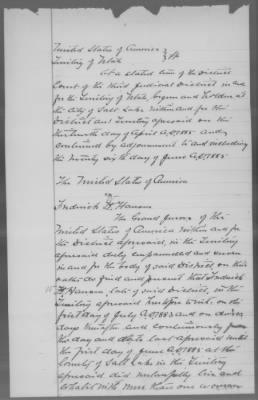 United States of America } ss
Territory of Utah
At a stated term of the District
Court of the third Judicial District in and
for the Territory of Utah, begun and holden at
the City of Salt Lake within and for the
District and Territory aforesaid on the
thirteenth day of April A.D. 1885 and
continued by adjournment to and including
the twenty sixth day of June A.D. 1885
The United States of America
vs
Fredrick H. Hansen
The Grand Jurors of the
United States of America within and for
the District aforesaid, in the Territory
aforesaid duly empannelled and sworn
in and for the body of said District on their
oaths do find and present that Fredrick
H. Hansen, late of said District, in the
Territory aforesaid heretofore to wit: on the
first day of July A.D. 1883 and on divers
days thereafter and continuously from
the day and date last aforesaid until
the first day of June A.D. 1885 at the
County of Salt Lake in the Territory
aforesaid did unlawfully live and
cohabit with more than one woman